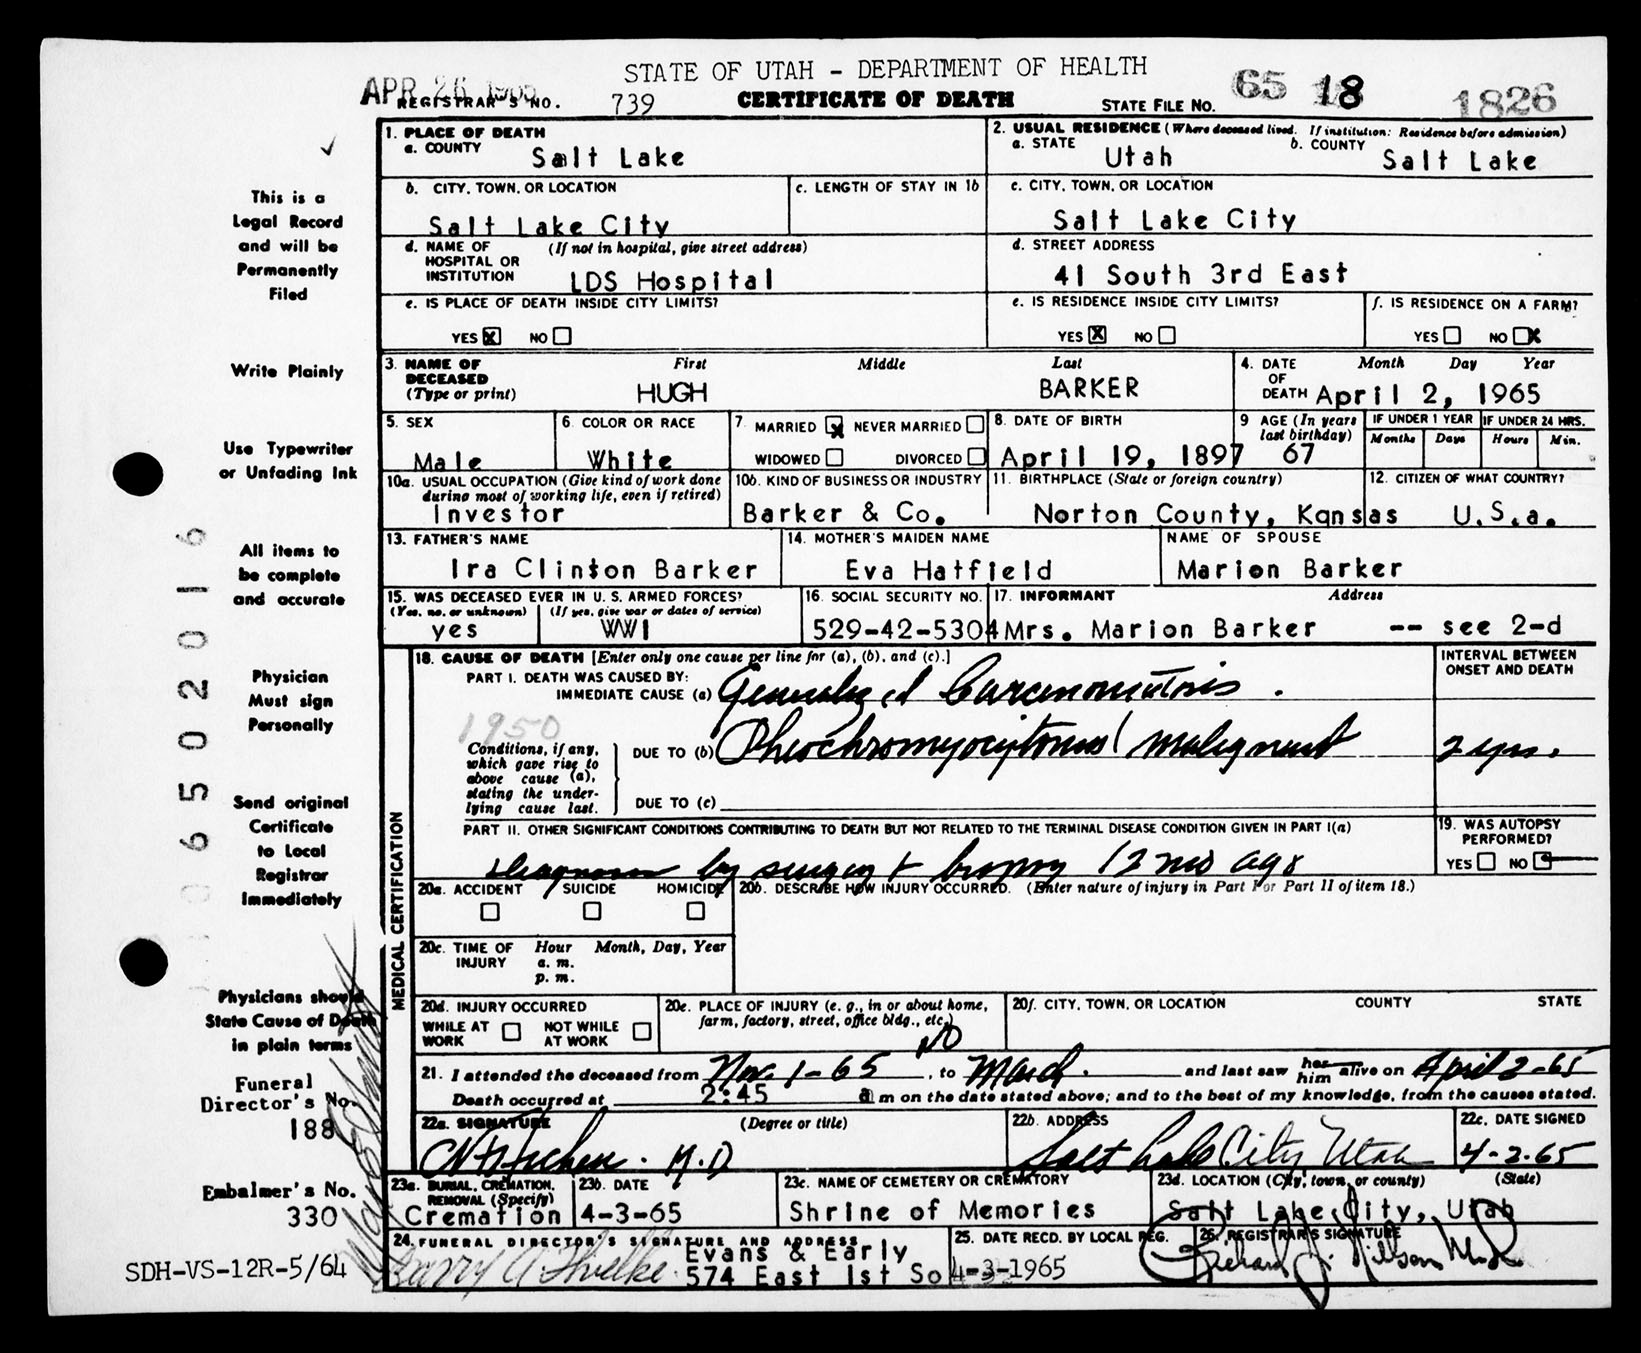 STATE OF UTAH - DEPARTMENT OF HEALTH
APR 26 1965 REGISTRAR'S NO. 739 CERTIFICATE OF DEATH STATE FILE NO. 65 18 1826
This is a Legal Record and will be Permanently Filed
Write Plainly
Use Typewriter or Unfading Ink
All items to be complete and accurate
Physician Must sign Personally
Send original Certificate to Local Registrar Immediately
Physicians should State Cause of Death in plain terms
Funeral Director's No. 188
Embalmer's No. 330
SDH-VS-12R-5/64
65 02016
1. PLACE OF DEATH
a. COUNTY Salt Lake
2. USUAL RESIDENCE (Where deceased lived. If institution: Residence before admission)
a. STATE Utah b. COUNTY Salt Lake
b. CITY, TOWN, OR LOCATION Salt Lake City
c. LENGTH OF STAY IN 1b
c. CITY, TOWN, OR LOCATION Salt Lake City
d. NAME OF HOSPITAL OR INSTITUTION (If not in hospital, give street address) LDS Hospital
d. STREET ADDRESS 41 South 3rd East
e. IS PLACE OF DEATH INSIDE CITY LIMITS? YES X NO
e. IS RESIDENCE INSIDE CITY LIMITS? YES X NO
f. IS RESIDENCE ON A FARM? YES NO X
3. NAME OF DECEASED (Type or print) First Middle Last
HUGH BARKER
4. DATE OF DEATH Month Day Year April 2, 1965
5. SEX Male
6. COLOR OR RACE White
7. MARRIED X NEVER MARRIED WIDOWED DIVORCED
8. DATE OF BIRTH April 19, 1897
9 AGE (In years last birthday) 67
IF UNDER 1 YEAR Months Days
IF UNDER 24 HRS. Hours Min.
10a. USUAL OCCUPATION (Give kind of work done during most of working life, even if retired) Investor
10b. KIND OF BUSINESS OR INDUSTRY Barker & Co.
11. BIRTHPLACE (State or foreign country) Norton County, Kansas
12. CITIZEN OF WHAT COUNTRY? U.S.a.
13. FATHER'S NAME Ira Clinton Barker
14. MOTHER'S MAIDEN NAME Eva Hatfield
NAME OF SPOUSE Marion Barker
15. WAS DECEASED EVER IN U. S. ARMED FORCES?
(Yes, no, or unknown) yes (If yes, give war or dates of service) WW1
16. SOCIAL SECURITY NO. 529-42-5304
17. INFORMANT Address Mrs. Marion Barker -- see 2-d
MEDICAL CERTIFICATION
18. CAUSE OF DEATH [Enter only one cause per line for (a), (b), and (c).]
INTERVAL BETWEEN ONSET AND DEATH
PART I. DEATH WAS CAUSED BY:
IMMEDIATE CAUSE (a) Generalized Carcinomatosis.
1950
Conditions, if any, which gave rise to above cause (a), stating the underlying cause last.
DUE TO (b) Pheochromyocytoma malignant 2 yrs.
DUE TO (c)
PART II. OTHER SIGNIFICANT CONDITIONS CONTRIBUTING TO DEATH BUT NOT RELATED TO THE TERMINAL DISEASE CONDITION GIVEN IN PART I(a)
diagnosis by surgery & biopsy 12 mo ago
19. WAS AUTOPSY PERFORMED? YES NO
20a. ACCIDENT SUICIDE HOMICIDE
20b. DESCRIBE HOW INJURY OCCURRED. (Enter nature of injury in Part I or Part II of item 18.)
20c. TIME OF INJURY Hour Month, Day, Year a. m. p. m.
20d. INJURY OCCURRED WHILE AT WORK NOT WHILE AT WORK
20e. PLACE OF INJURY (e. g., in or about home, farm, factory, street, office bldg., etc.) NO
20f. CITY, TOWN, OR LOCATION COUNTY STATE
21. I attended the deceased from Nov. 1-65, to March. and last saw her him alive on April 2-65
Death occurred at 2:45 a m on the date stated above; and to the best of my knowledge, from the causes stated.
22a. SIGNATURE (Degree or title) M.D
22b. ADDRESS Salt Lake City Utah
22c. DATE SIGNED 4-2-65
23a. BURIAL, CREMATION, REMOVAL (Specify) Cremation
23b. DATE 4-3-65
23c. NAME OF CEMETERY OR CREMATORY Shrine of Memories
23d. LOCATION (City, town, or county) (State) Salt Lake City, Utah
24. FUNERAL DIRECTOR'S SIGNATURE AND ADDRESS Evans & Early
574 East 1st So
25. DATE RECD. BY LOCAL REG. 4-3-1965
26. REGISTRAR'S SIGNATURE